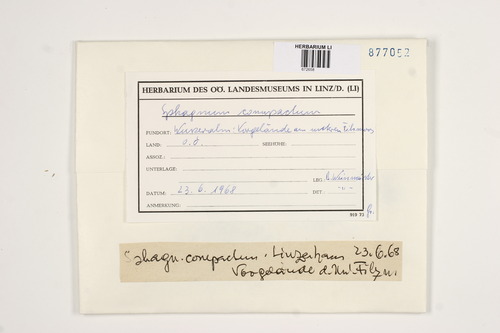 HERBARIUM LI
877052
HERBARIUM DES OÖ. LANDESMUSEUMS IN LINZ/D. (LI)
Sphagnum compactum
FUNDORT: Vorgelände am unteren
LAND: O.Ö. SEEHÖHE:
ASSOZ.:
UNTERLAGE:
LEG.
DATUM: 23.6.1968 DET. -"-
ANMERKUNG:
Sphagn. compactum. Linzerhaus 23.6.68
Vorgelände d. Unt. Filzm.